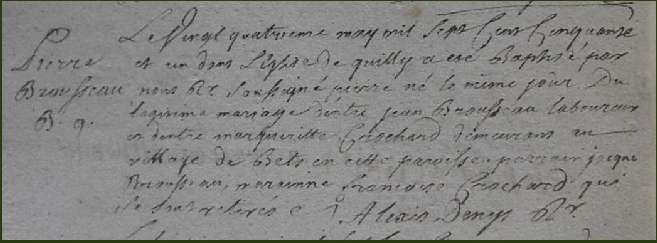 Pierre
Brousseau
B. g.
Le Vingt quatrieme may mil Sept Cent Cinquante
et un dans L'eglise de quilly a eté Baptisé par
nous Ptr Soussigné pierre né le même jour Du
legitime mariage d'entre jean Brousseau laboureur
et d'entre margueritte Crochard demeurans au
village de Bels en cette paroisse parrain jacque
Brousseau, maraine francoise Crochard qui
Se sont retirés
Alexis Deneys Ptr